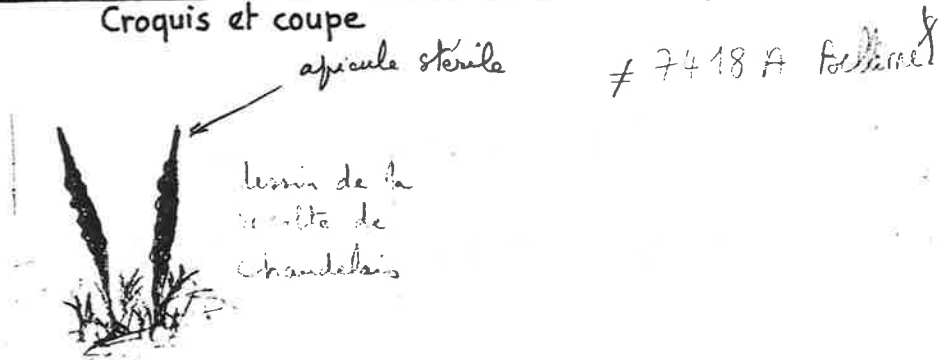 Croquis et coupe
apicule stérile
≠ 7418 A
dessin de la
récolte de
chandelais